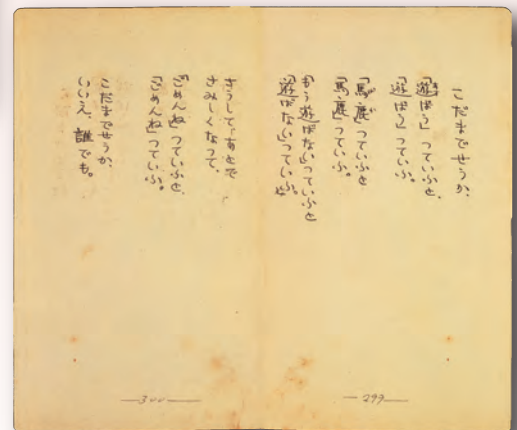 こだまでせうか、
「遊ばう」っていふと、
「遊ばう」っていふ。
「馬鹿」っていふと
「馬鹿」っていふ。
「もう遊ばない」っていふと
「遊ばない」っていふ。
さうして、あとで
さみしくなって、
「ごめんね」っていふと、
「ごめんね」っていふ。
こだまでせうか、
いいえ、誰でも。
— 299 —
— 300 —